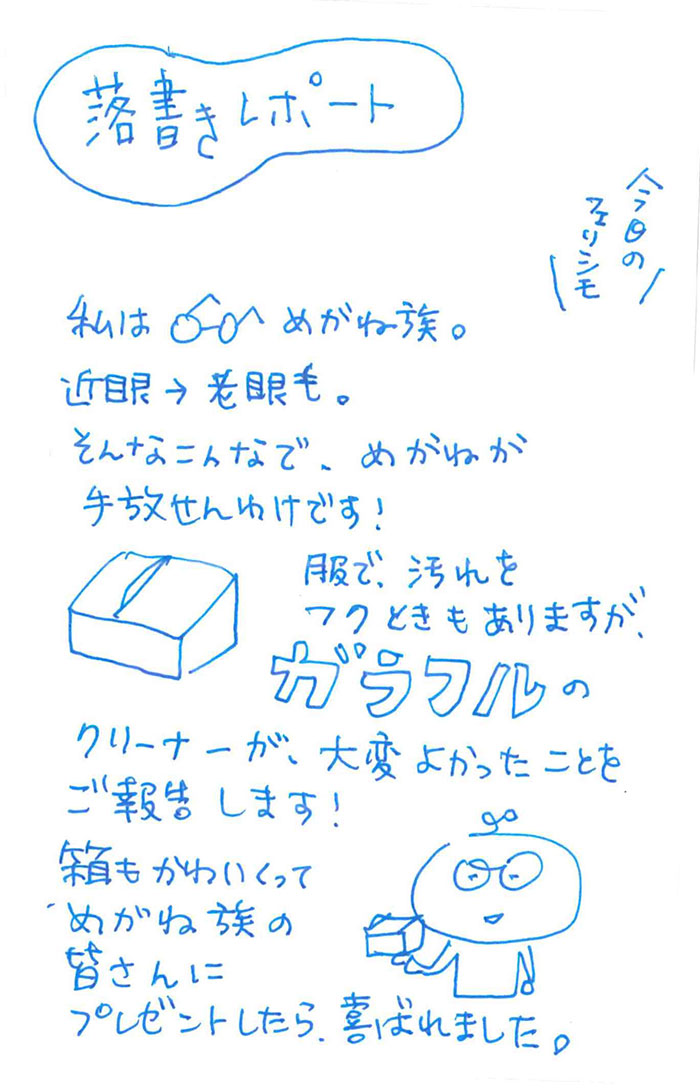 落書きレポート
今日の
フェリシモ
私は めがね族。
近眼→老眼も。
そんなこんなで、めがねが
手放せんわけです!
服で、汚れを
フクときもありますが、
ガラフルの
クリーナーが、大変よかったことを
ご報告します!
箱もかわいくって
めがね族の
皆さんに
プレゼントしたら、喜ばれました。